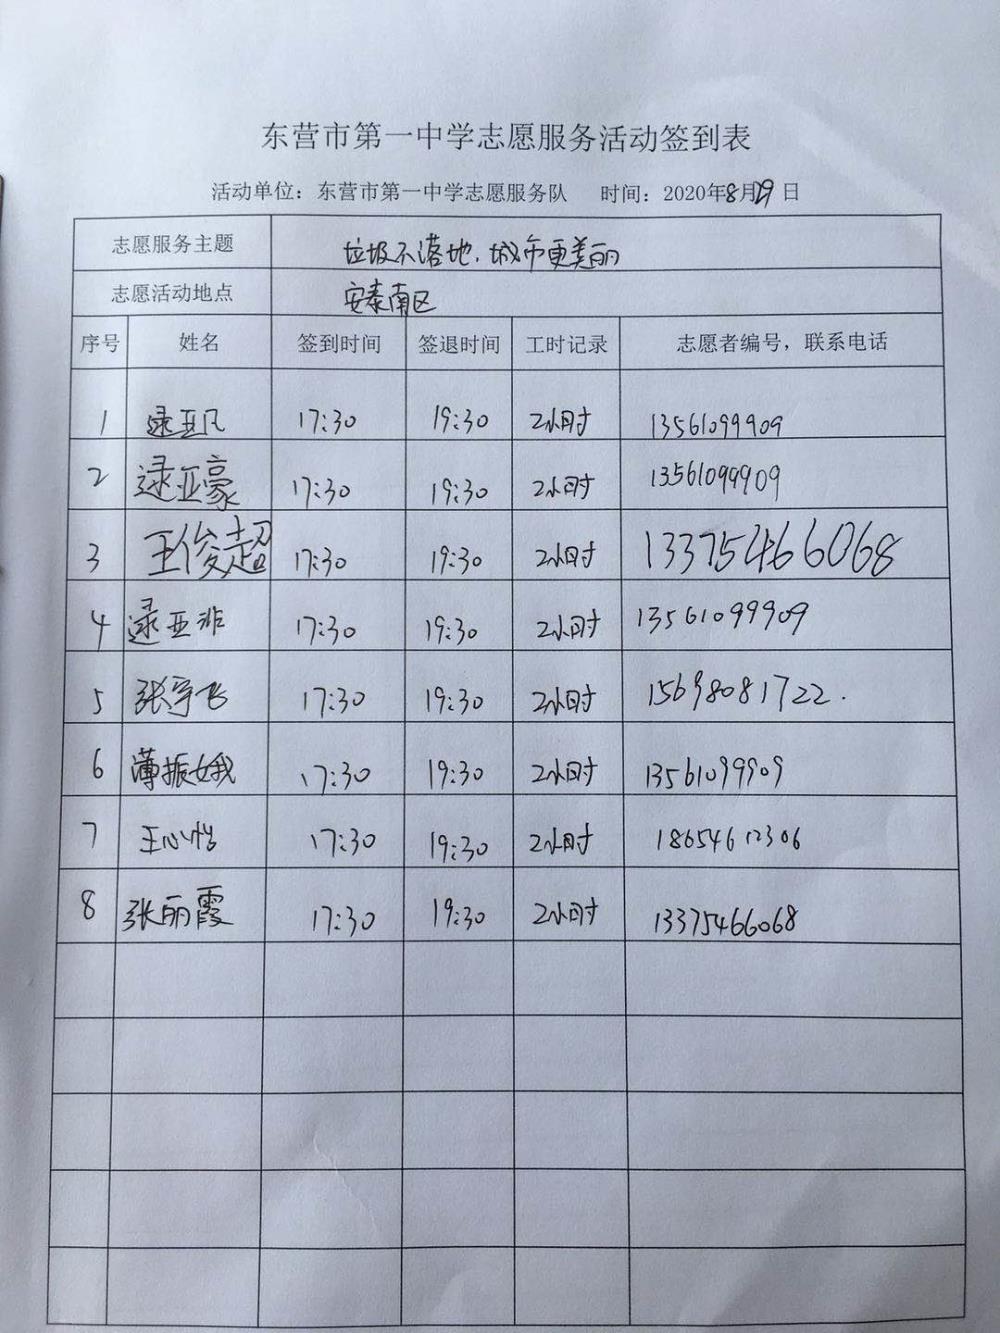 东营市第一中学志愿服务活动签到表
活动单位：东营市第一中学志愿服务队 时间：2020年8月29日
志愿服务主题 垃圾不落地，城市更美丽
志愿活动地点 安泰南区
序号 姓名 签到时间 签退时间 工时记录 志愿者编号，联系电话
1 逯亚凡 17:30 19:30 2小时 13561099909
2 逯亚豪 17:30 19:30 2小时 13561099909
3 王俊超 17:30 19:30 2小时 13375466068
4 逯亚非 17:30 19:30 2小时 13561099909
5 张宇飞 17:30 19:30 2小时 15698081722.
6 薄振娥 17:30 19:30 2小时 13561099909
7 王心怡 17:30 19:30 2小时 18654612306
8 张丽霞 17:30 19:30 2小时 13375466068